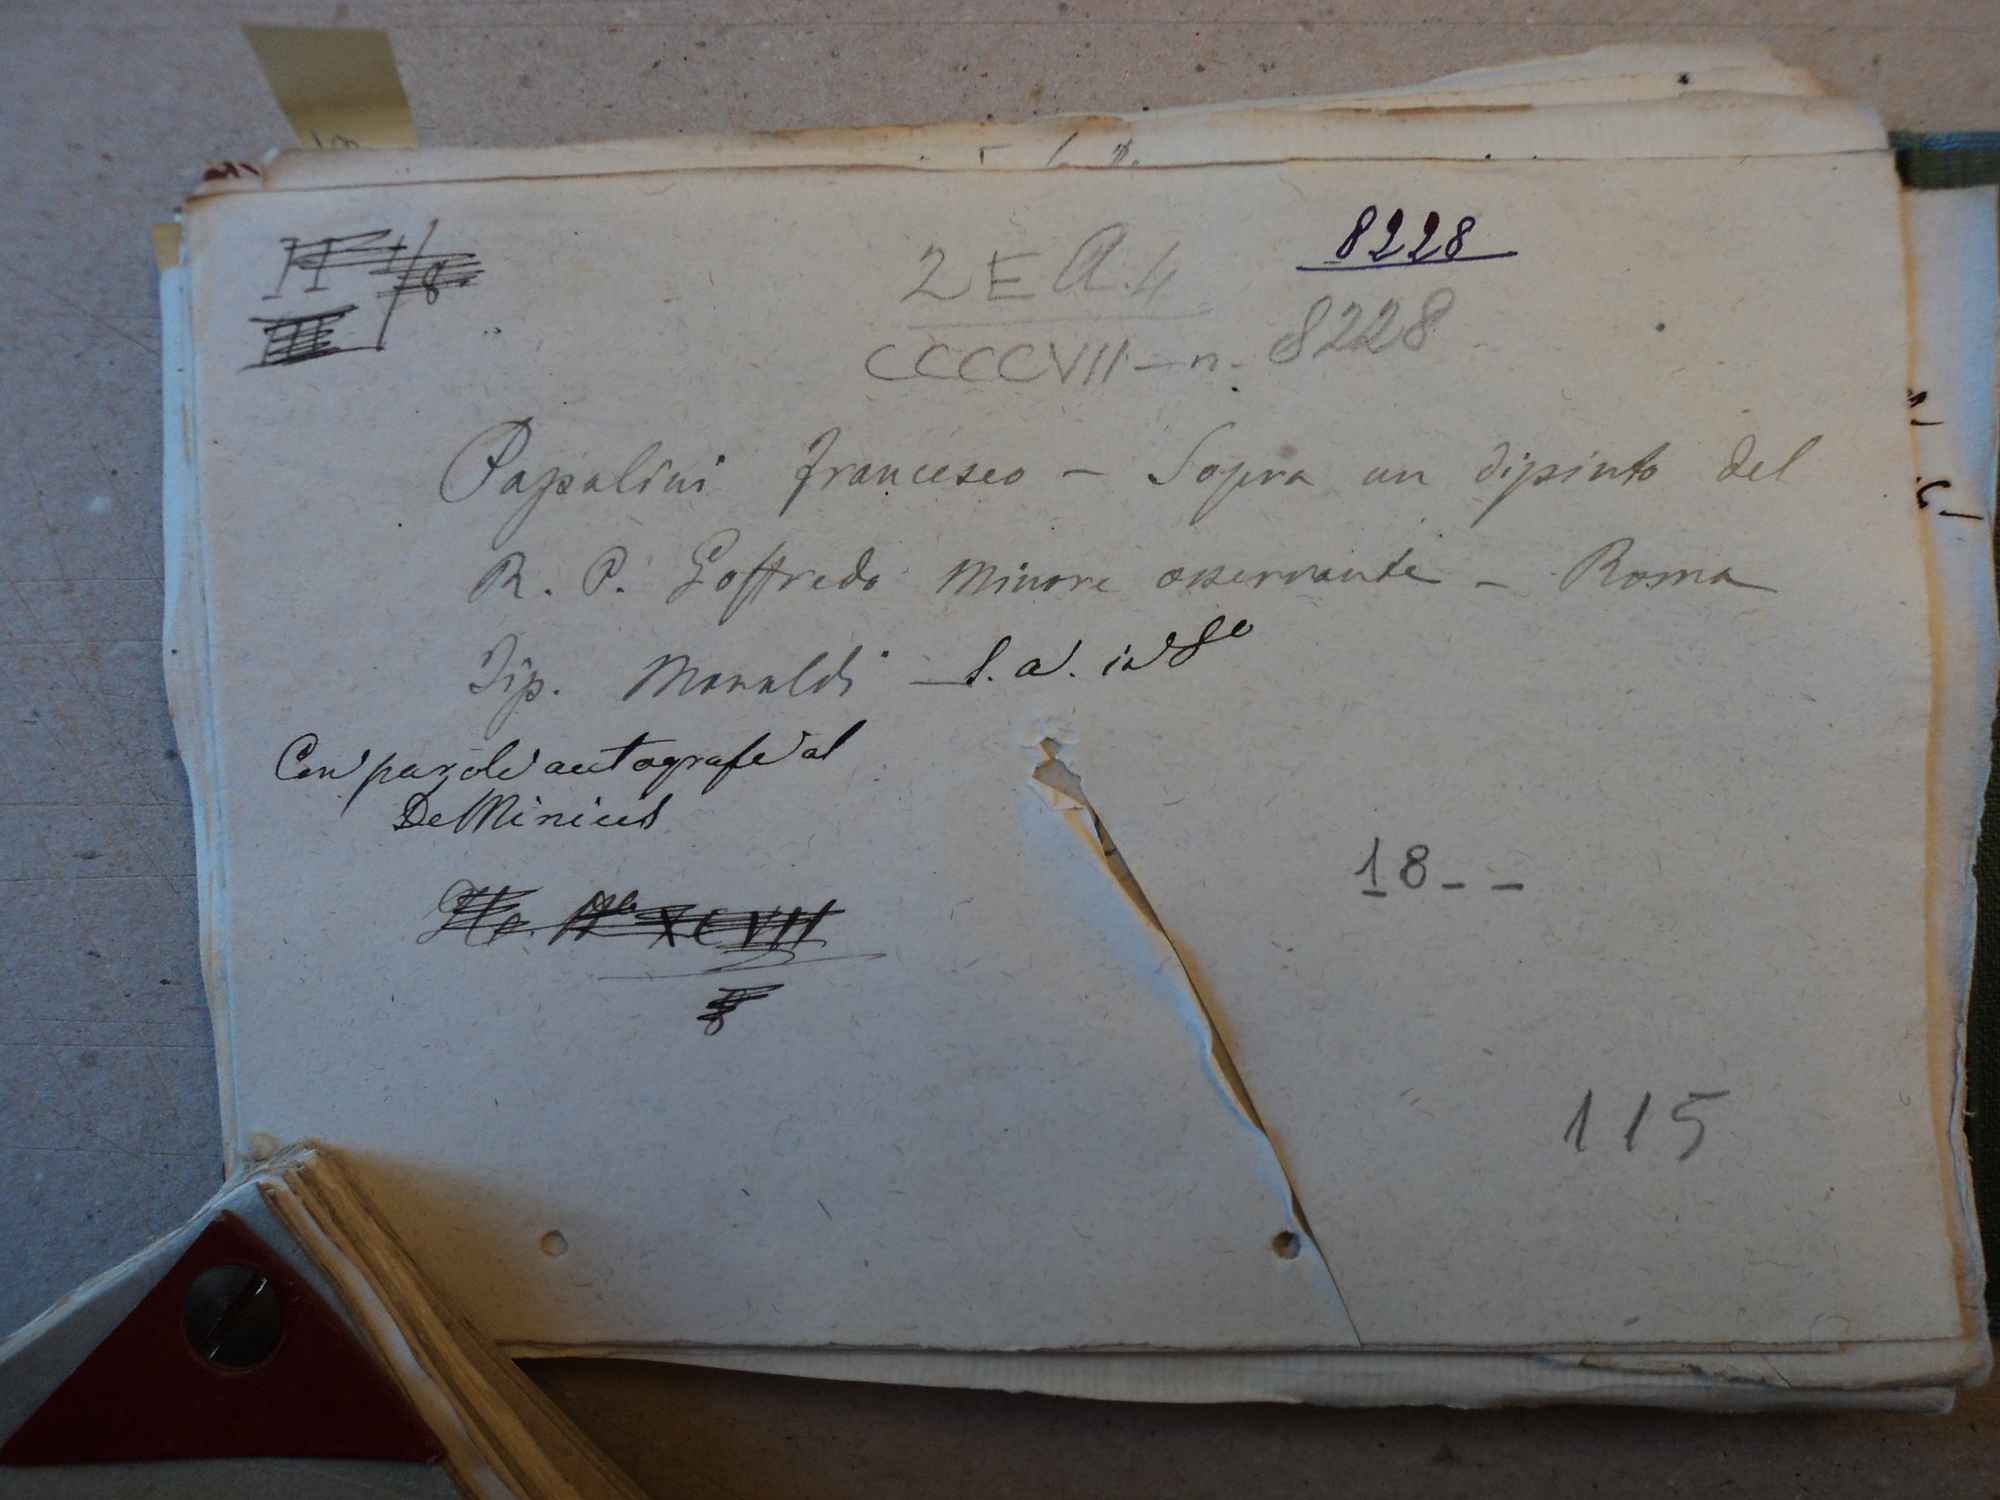 8228
2 E A.4
CCCCVII - n. 8228
Papalini Francesco - Sopra un dipinto del
R. P. Goffredo Minore osservante - Roma
Tip. Monaldi - S. a. in 8o
Con parole autografe al
De Minicis
18 - -
XCVII
115